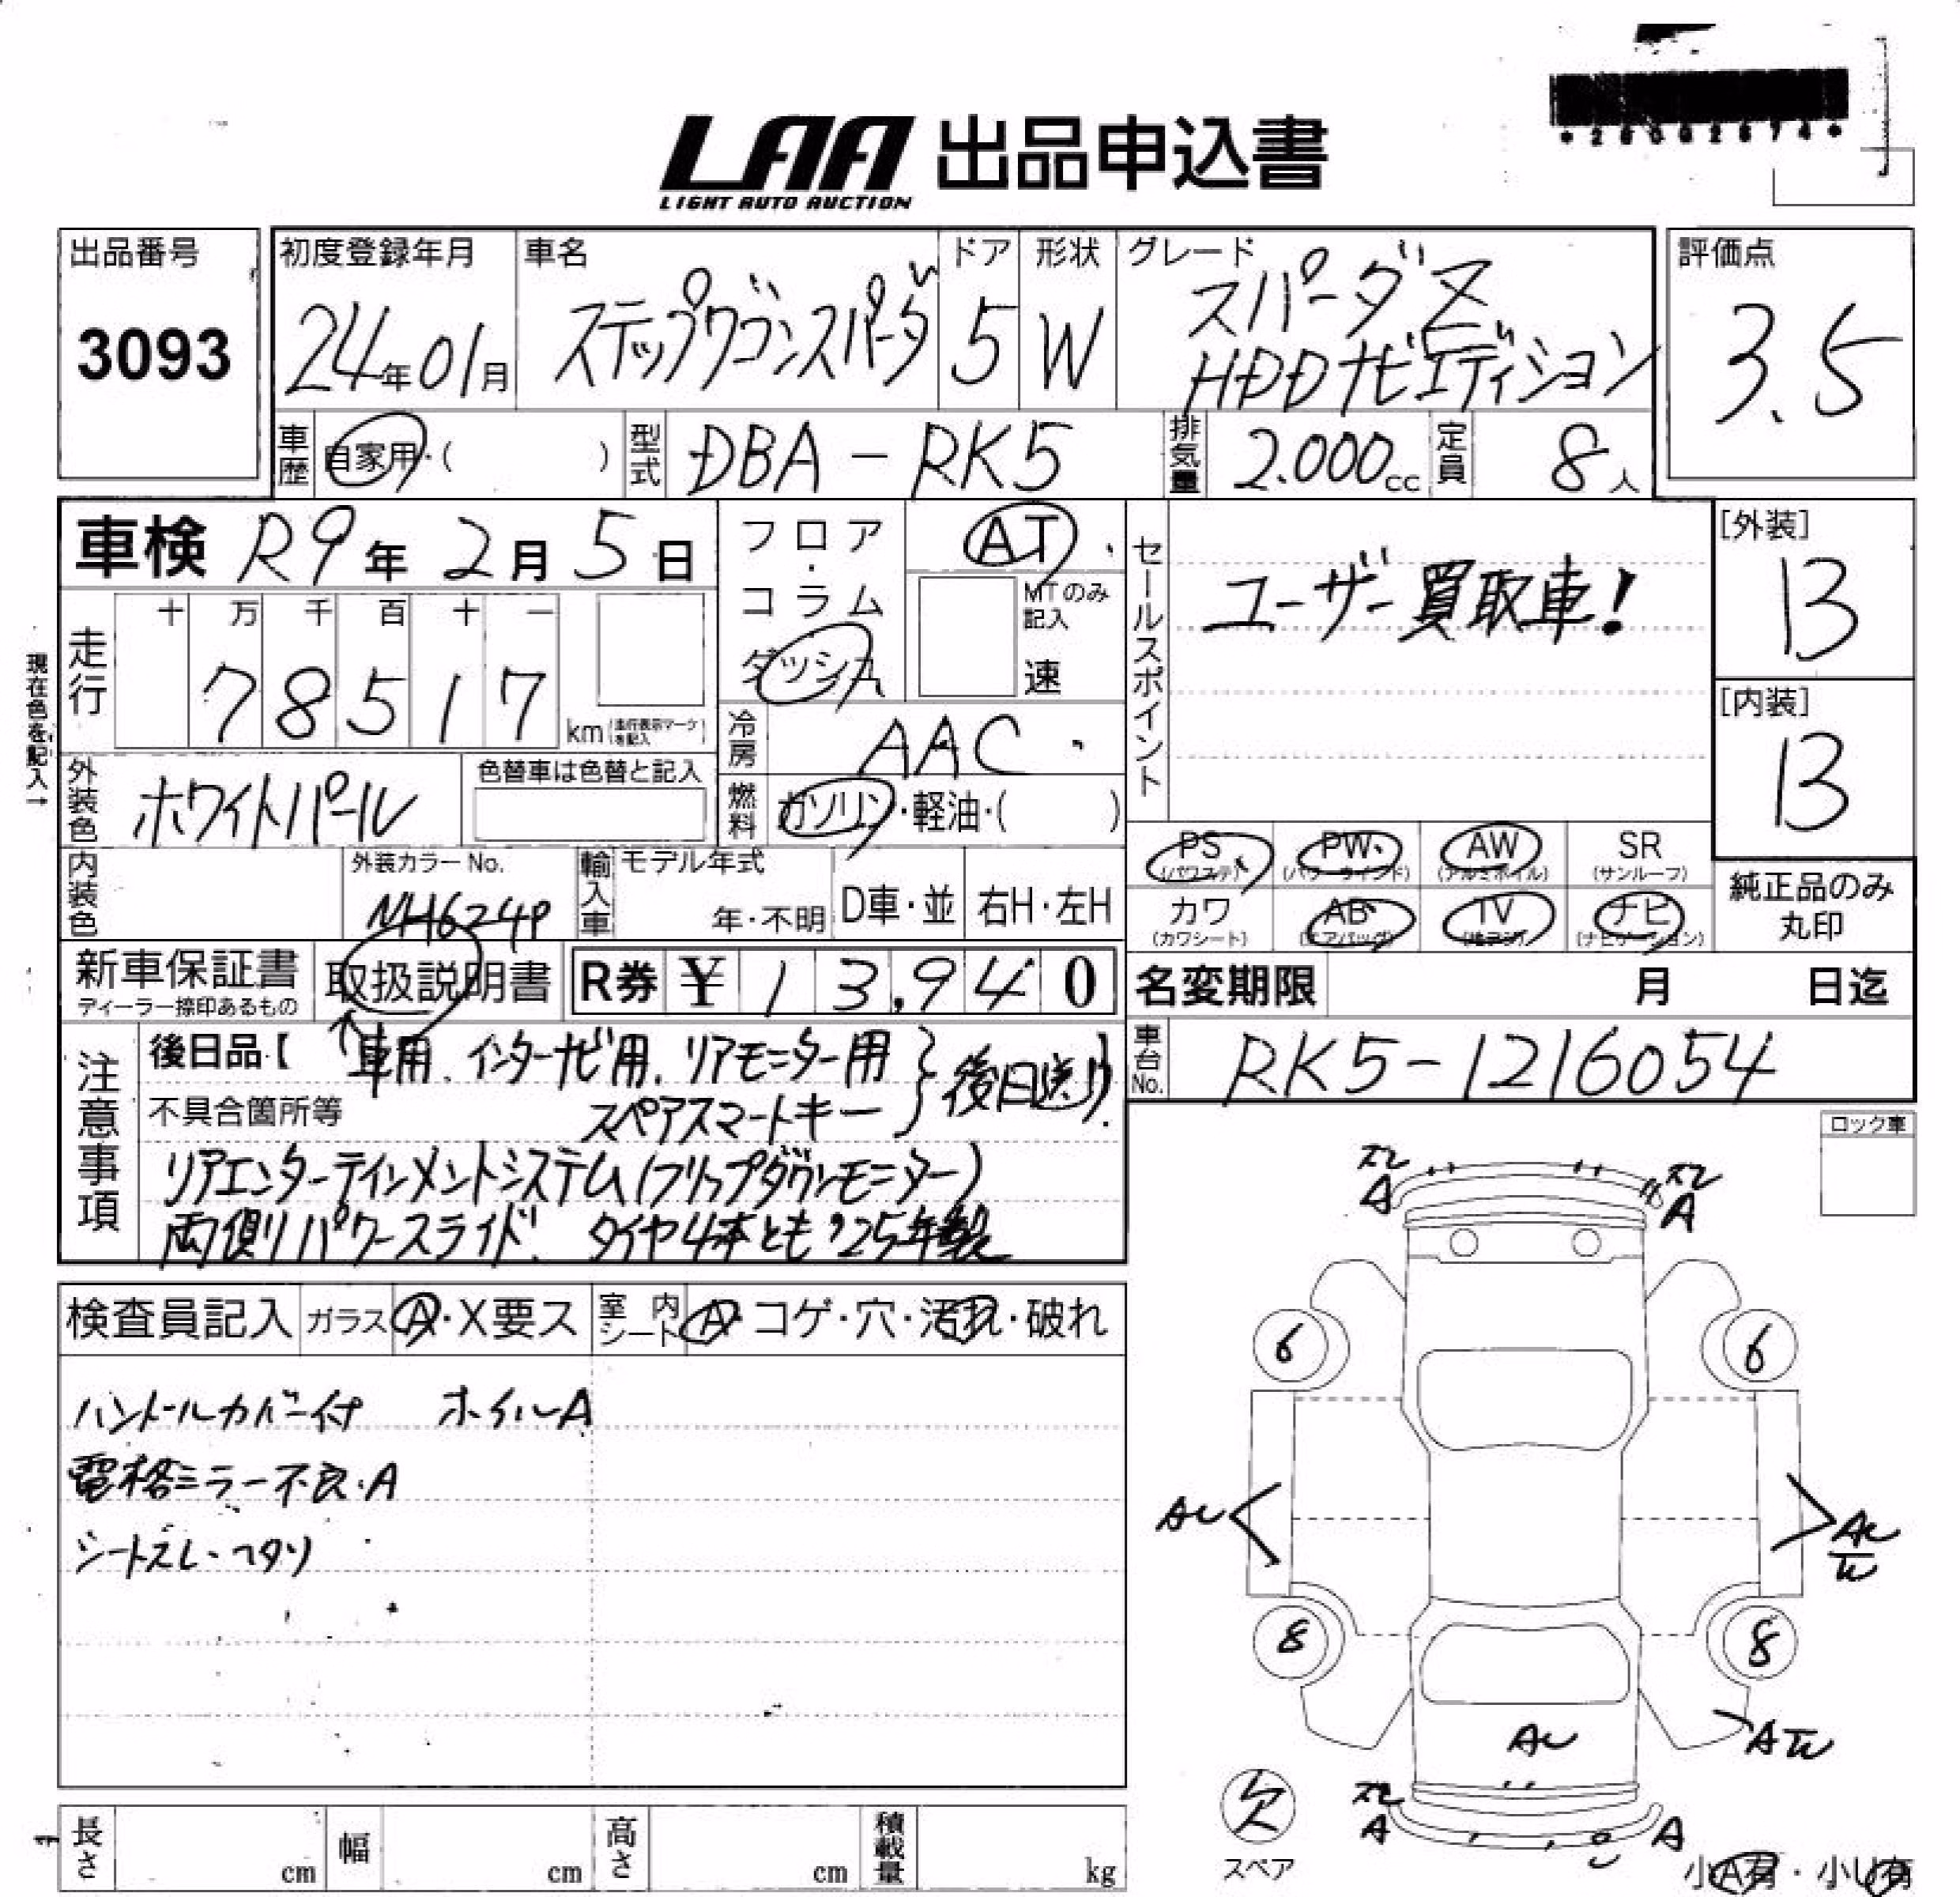 LAA 出品申込書
LIGHT AUTO AUCTION
出品番号
3093
初度登録年月
24年01月
車名
ステップワゴンスパーダ
ドア
5
形状
W
グレード
スパーダZ
HDDナビエディション
評価点
3.5
車歴
自家用・( )
型式
DBA-RK5
排気量
2.000cc
定員
8人
車検 R9年2月5日
現在色を記入→
走行
十 万 千 百 十 一
7 8 5 1 7
km(走行表示マークを記入)
フロア・コラム
ダッシュ
AT
MTのみ記入
速
冷房
AAC
燃料
ガソリン・軽油・( )
セールスポイント
ユーザー買取車!
[外装]
13
[内装]
13
外装色
ホワイトパール
色替車は色替と記入
内装色
外装カラーNo.
NH624P
輸入車
モデル年式
年・不明
D車・並
右H・左H
PS
(パワステ)
PW
(パワーウインド)
AW
(アルミホイル)
SR
(サンルーフ)
カワ
(カワシート)
AB
(エアバッグ)
TV
(地デジ)
ナビ
(ナビゲーション)
純正品のみ
丸印
新車保証書
ディーラー捺印あるもの
取扱説明書
R券 ¥ 13,940
名変期限 月 日迄
車台No.
RK5-1216054
注意事項
後日品【 車用、インターナビ用、リアモニター用 】
スペアスマートキー
後日送り
不具合箇所等
リアエンターテインメントシステム(フリップダウンモニター)
両側パワースライド! タイヤ4本とも'25年製
ロック車
検査員記入
ガラス
A・X要ス
室内シート
A・コゲ・穴・汚れ・破れ
ハンドルカバー付 ホイルA
電格ミラー不良・A
シートスレ・ヘタリ
スレ
A
スレ
A
6
6
AU
AU
W
8
8
AU
AW
スレ
A
A
欠
スペア
小A有・小U有
長さ
cm
幅
cm
高さ
cm
積載量
kg